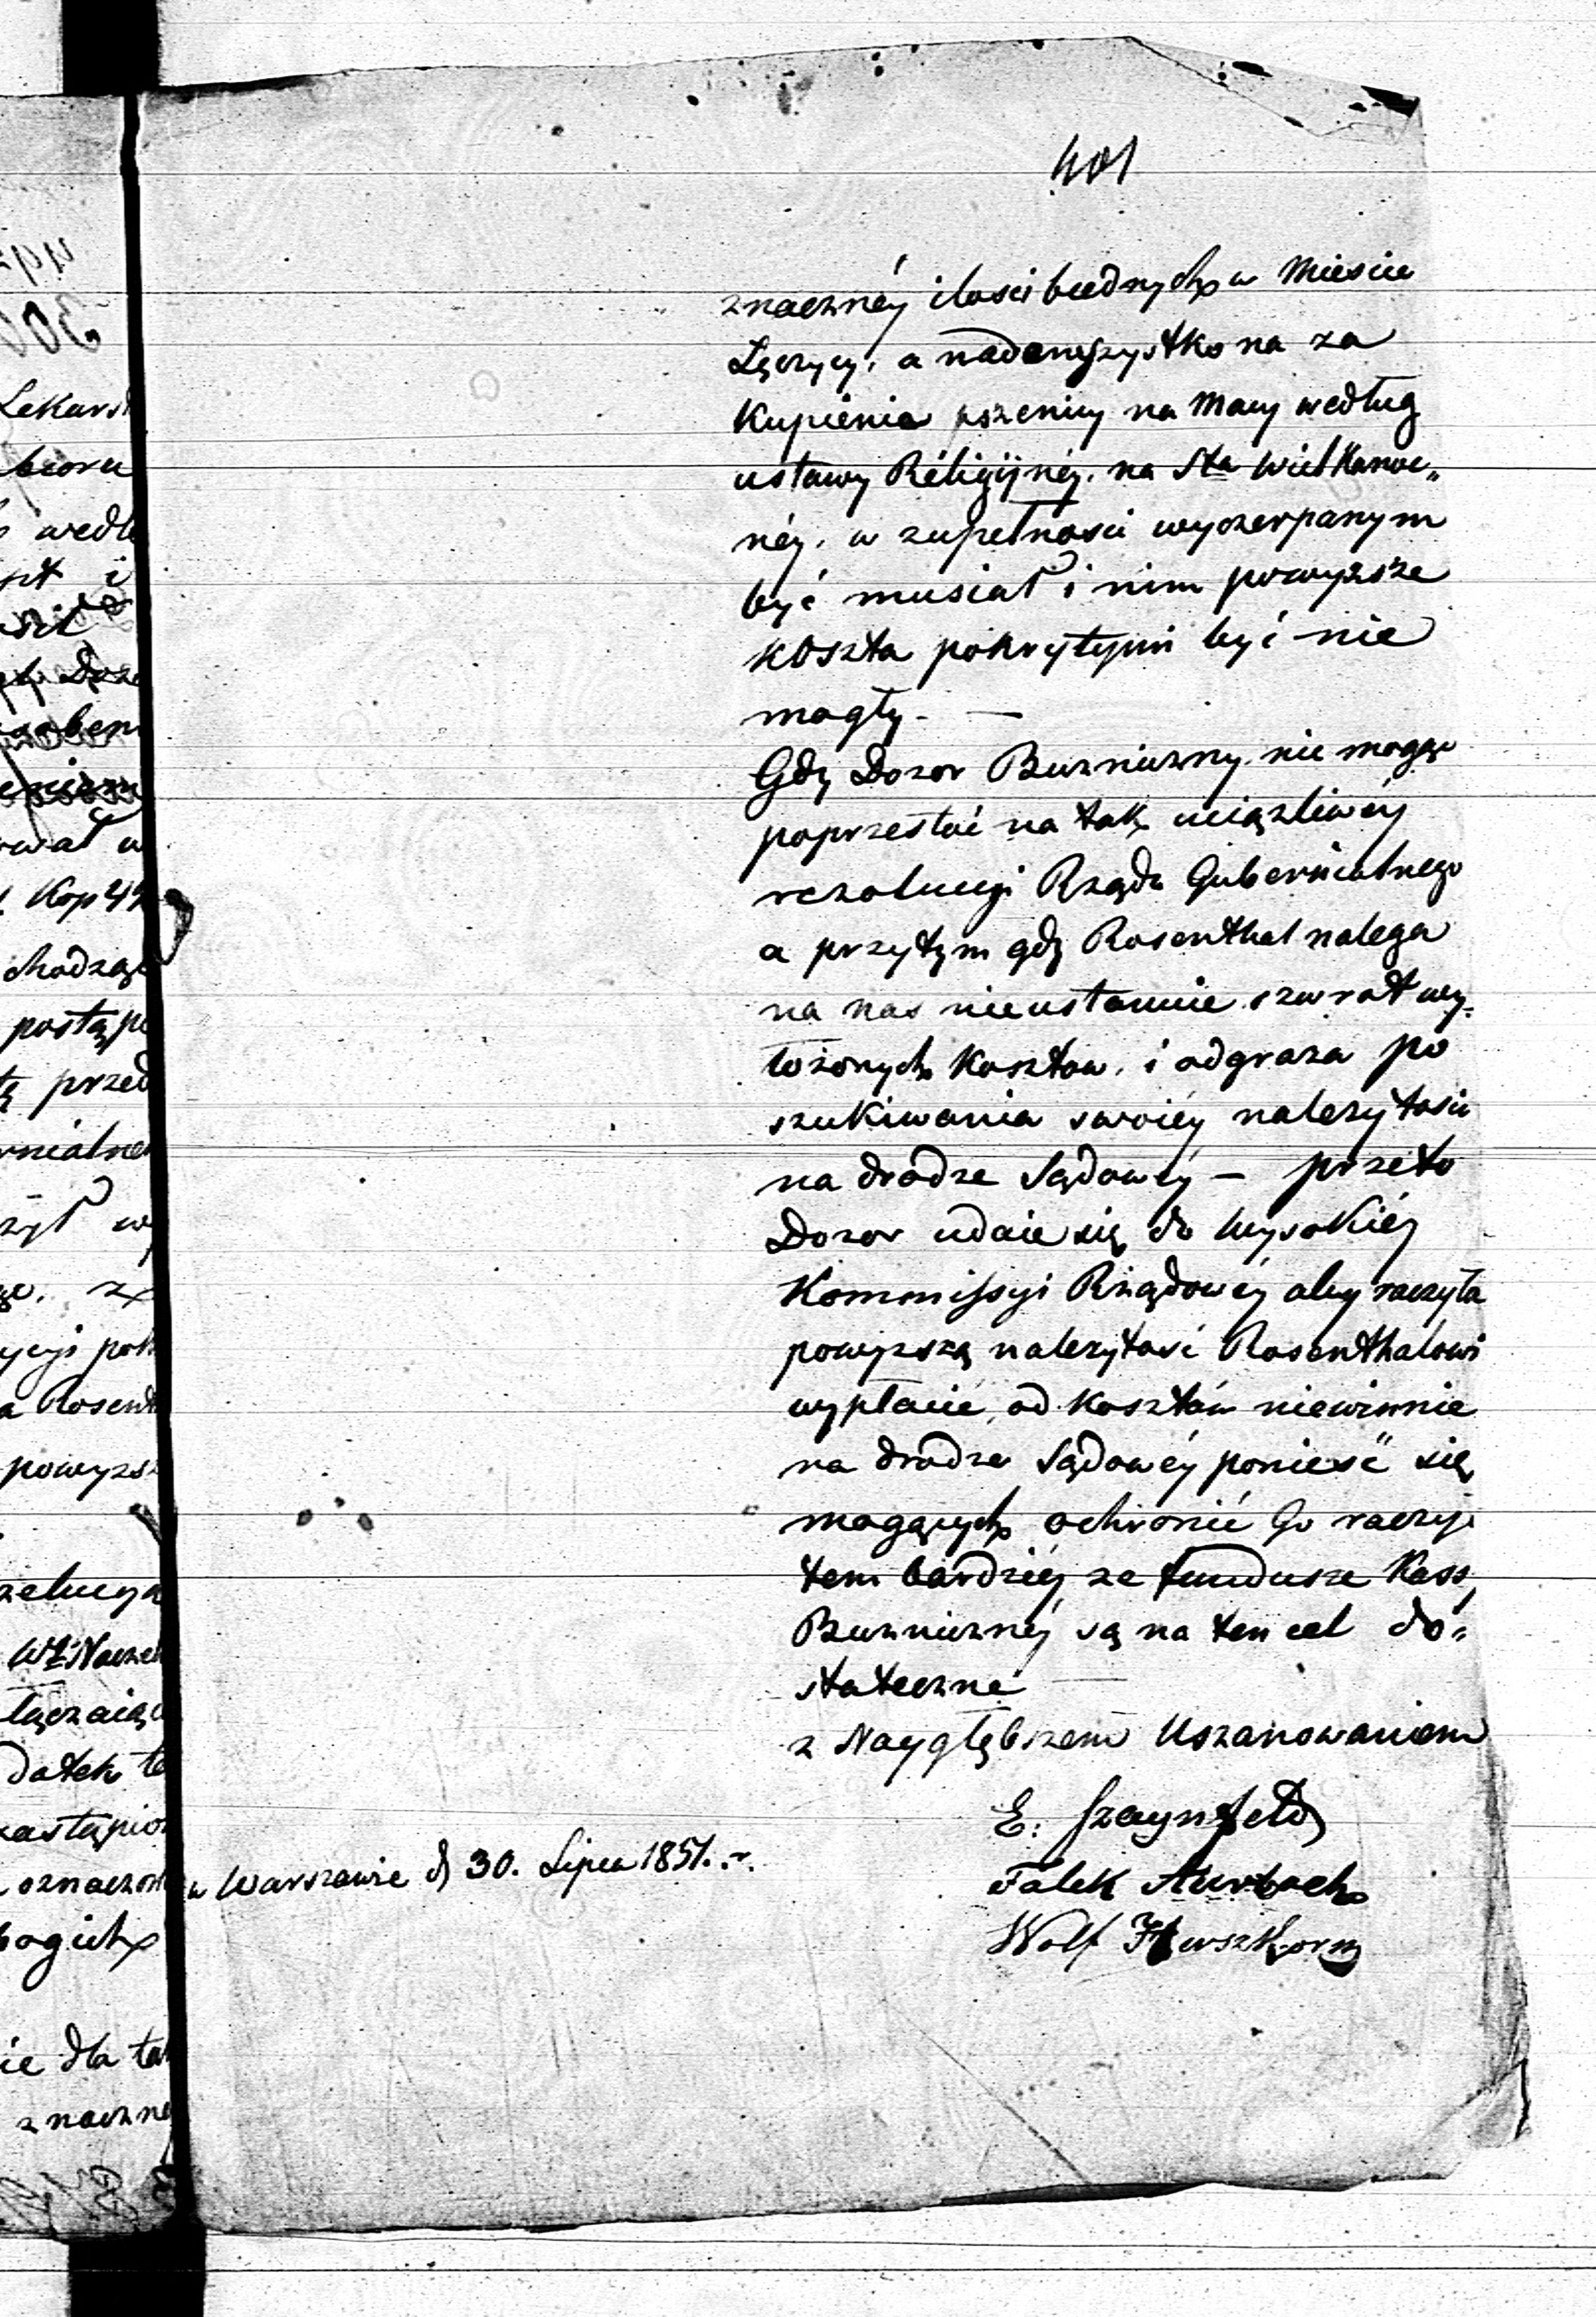 401
znacznéy ilosci biednych w Miescie
Łęczycy, a nadewszystko na za
Kupienia pszenicy na Macy według
ustawy Réligijnéy. na Sta Wielkanoc„
néy. w zupełnosci wyczerpanym
być musiał i nim powyzsze
koszta pokrytymi być nie
mogły. —
Gdy Dozor Buzniczny nie mogąc
poprzestać na tak uciązliwéy
rezolucyi Rządu Gubernialnego
a przytym gdy Rosenthal nalega
na nas nieustannie zwrot wy„
łożonych Kosztow. i odgraza po
szukiwania swoiéy nalezytosci
na drodze Sądowéy — przeto
Dozor udaie się do Wysokiéy
Kommissyi Rządowéy aby raczyła
powyzszą nalezytość Rosenthalowi
wypłacić, od kosztów niewinnie
na drodze Sądowéy ponieść się
mogących ochronić Go raczyć
tem bardziéy ze fundusze Kass
Buznicznéy są na ten cel do„
stateczne —
z Naygłębszem Uszanowaniem
E. Szaynfeld
w Warszawie d 30. Lipca 1851. r.
Falek Aurbach
Wolf
Lekarsk
według
Kop
chodzą
postąp
przed
rnialne
Rosenth
powyzs
łączaią
datek
zastąpion
oznaczon
bogich
ie dla tak
znaczne